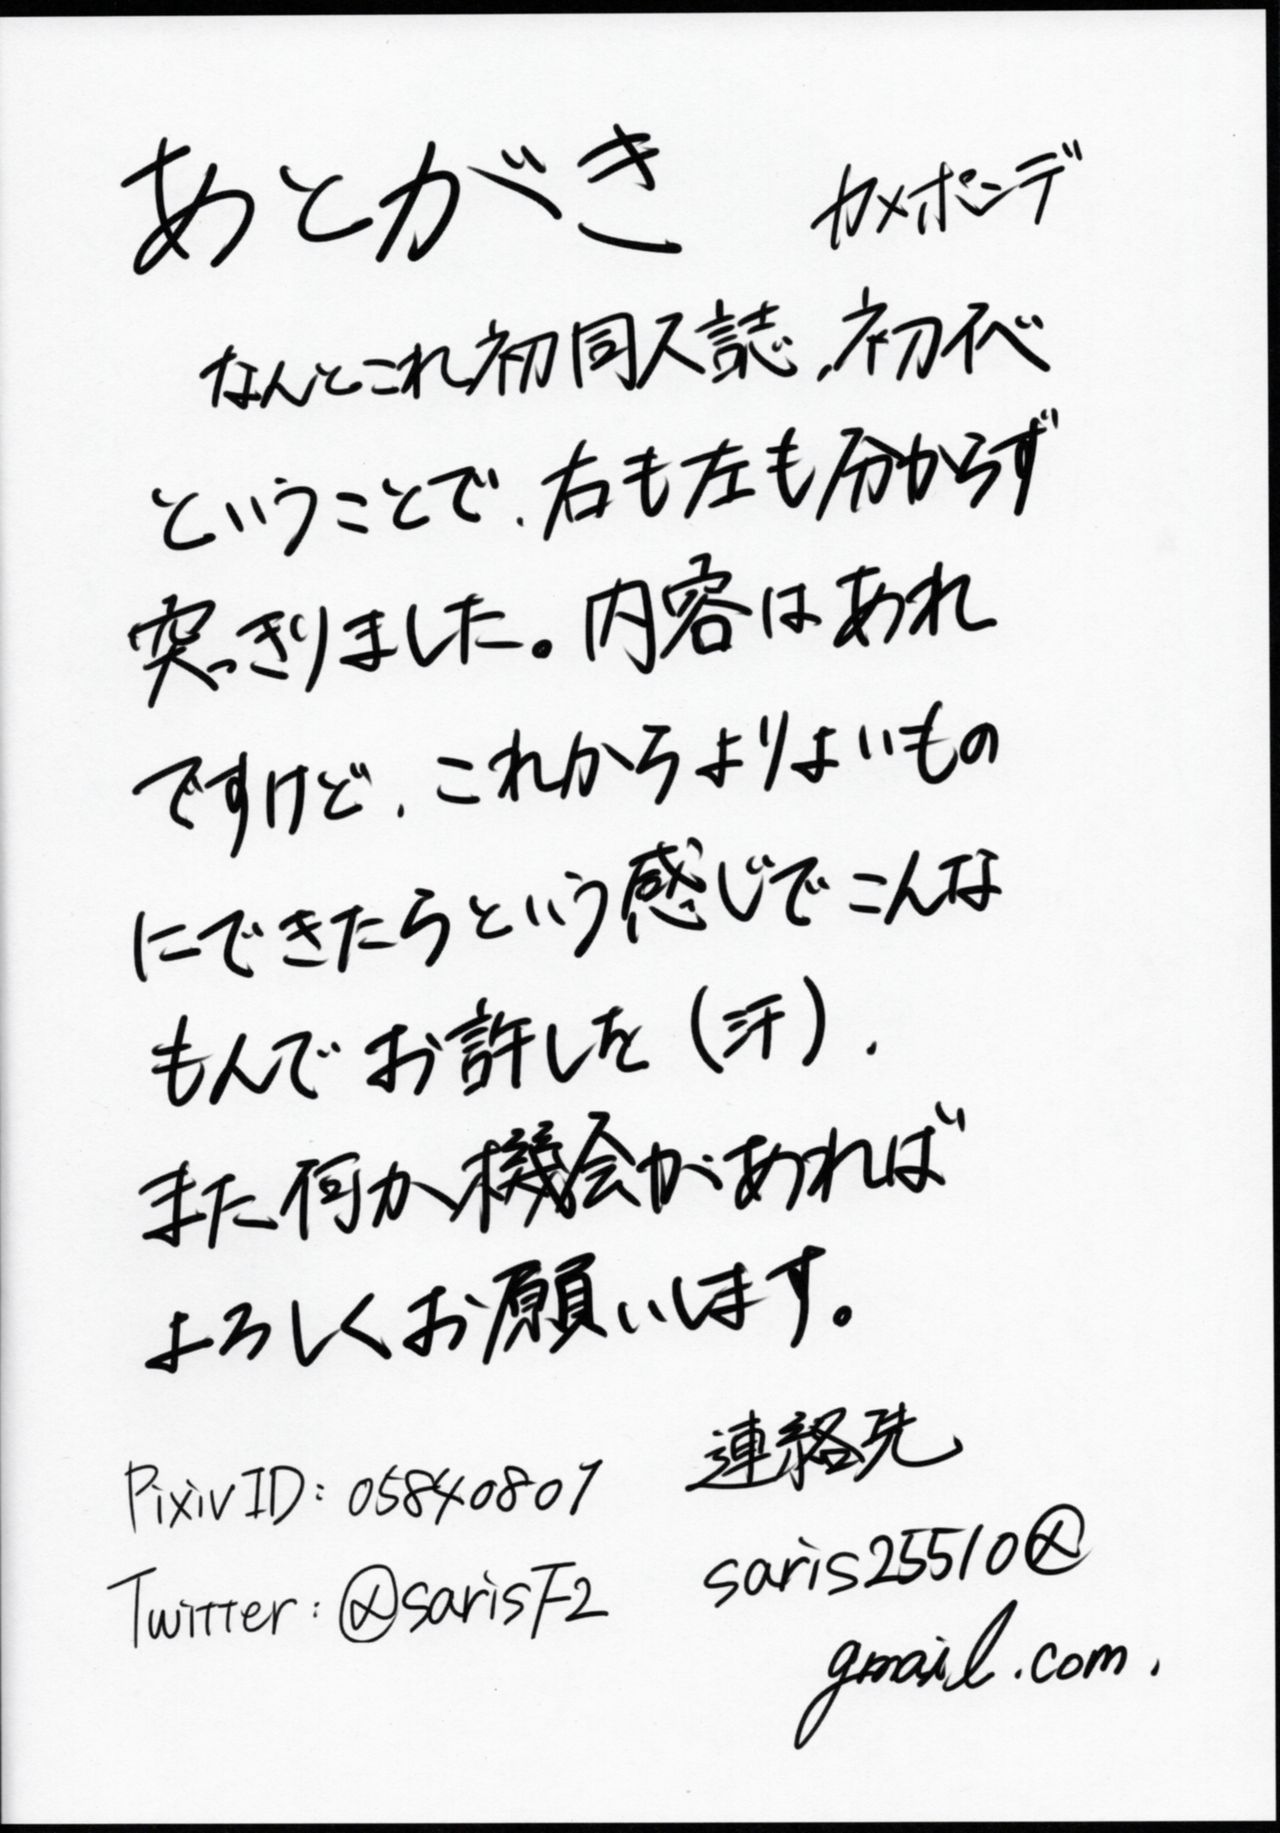 あとがき
カメポンデ
なんとこれ初同人誌、初イベ
ということで、右も左も分からず
突っきりました。内容はあれ
ですけど、これからよりよいもの
にできたらという感じでこんな
もんでお許しを(汗)、
また何か機会があれば
よろしくお願いします。
連絡先
Pixiv ID: 05840807
saris25510@
Twitter: @sarisF2
gmail.com.